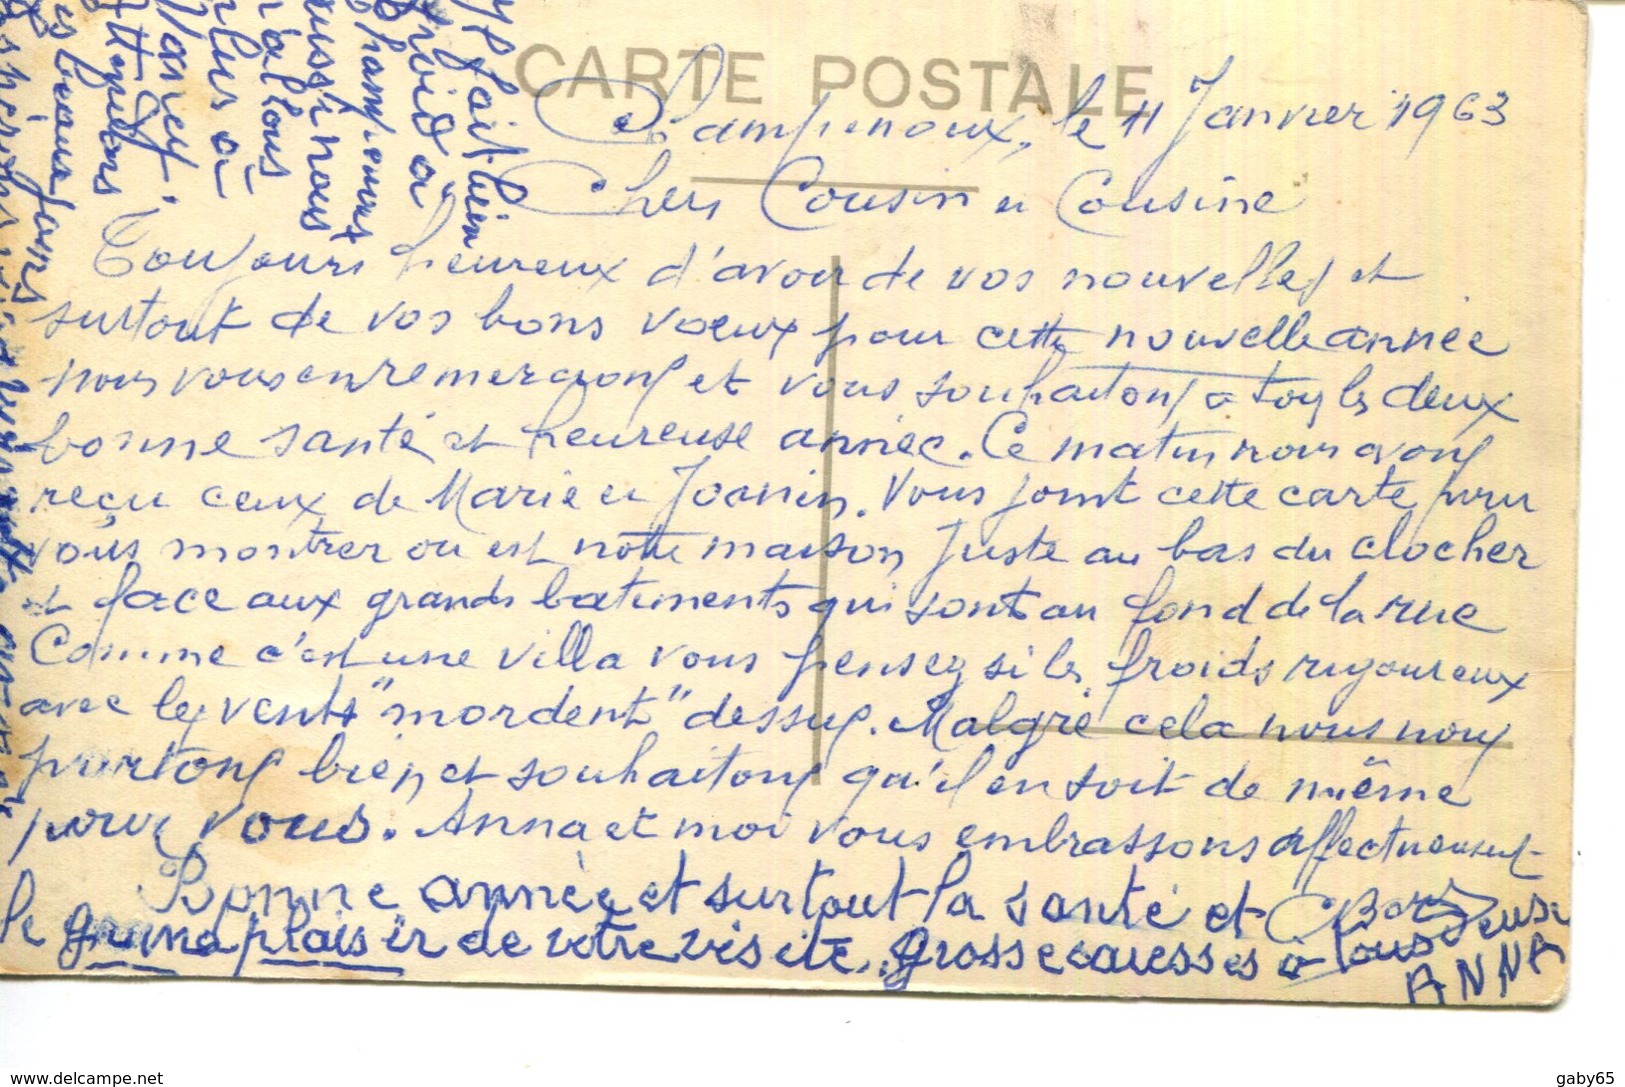 CARTE POSTALE
Champenoux, le 11 Janvier 1963
Chers Cousin et Cousine
Toujours heureux d'avoir de vos nouvelles et
surtout de vos bons voeux pour cette nouvelle année
nous vous en remercions et vous souhaitons à tous les deux
bonne santé et heureuse année. Ce matin nous avons
reçu ceux de Marie et Joanin. Vous joint cette carte pour
vous montrer ou est notre maison juste au bas du clocher
et face aux grands batiments qui sont au fond de la rue
Comme c'est une villa vous pensez si les froids rigoureux
avec les vents "mordent" dessus. Malgré cela nous nous
portons bien et souhaitons qu'il en soit de même
pour vous. Anna et moi vous embrassons affectueuse
Bonne année et surtout la santé et
le grand plaisir de votre visite. grosse caresses à tous deux
ANNA
Il fait bien
froid à
Champenoux
aussi nous
n'allons
plus à
Nancy.
Attendons
les beaux jours
www.delcampe.net
gaby65